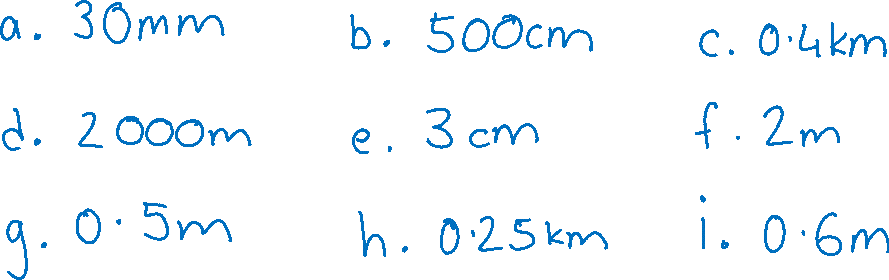 a. 30mm b. 500cm c. 0·4km
d. 2000m e. 3cm f. 2m
g. 0·5m h. 0·25km i. 0·6m